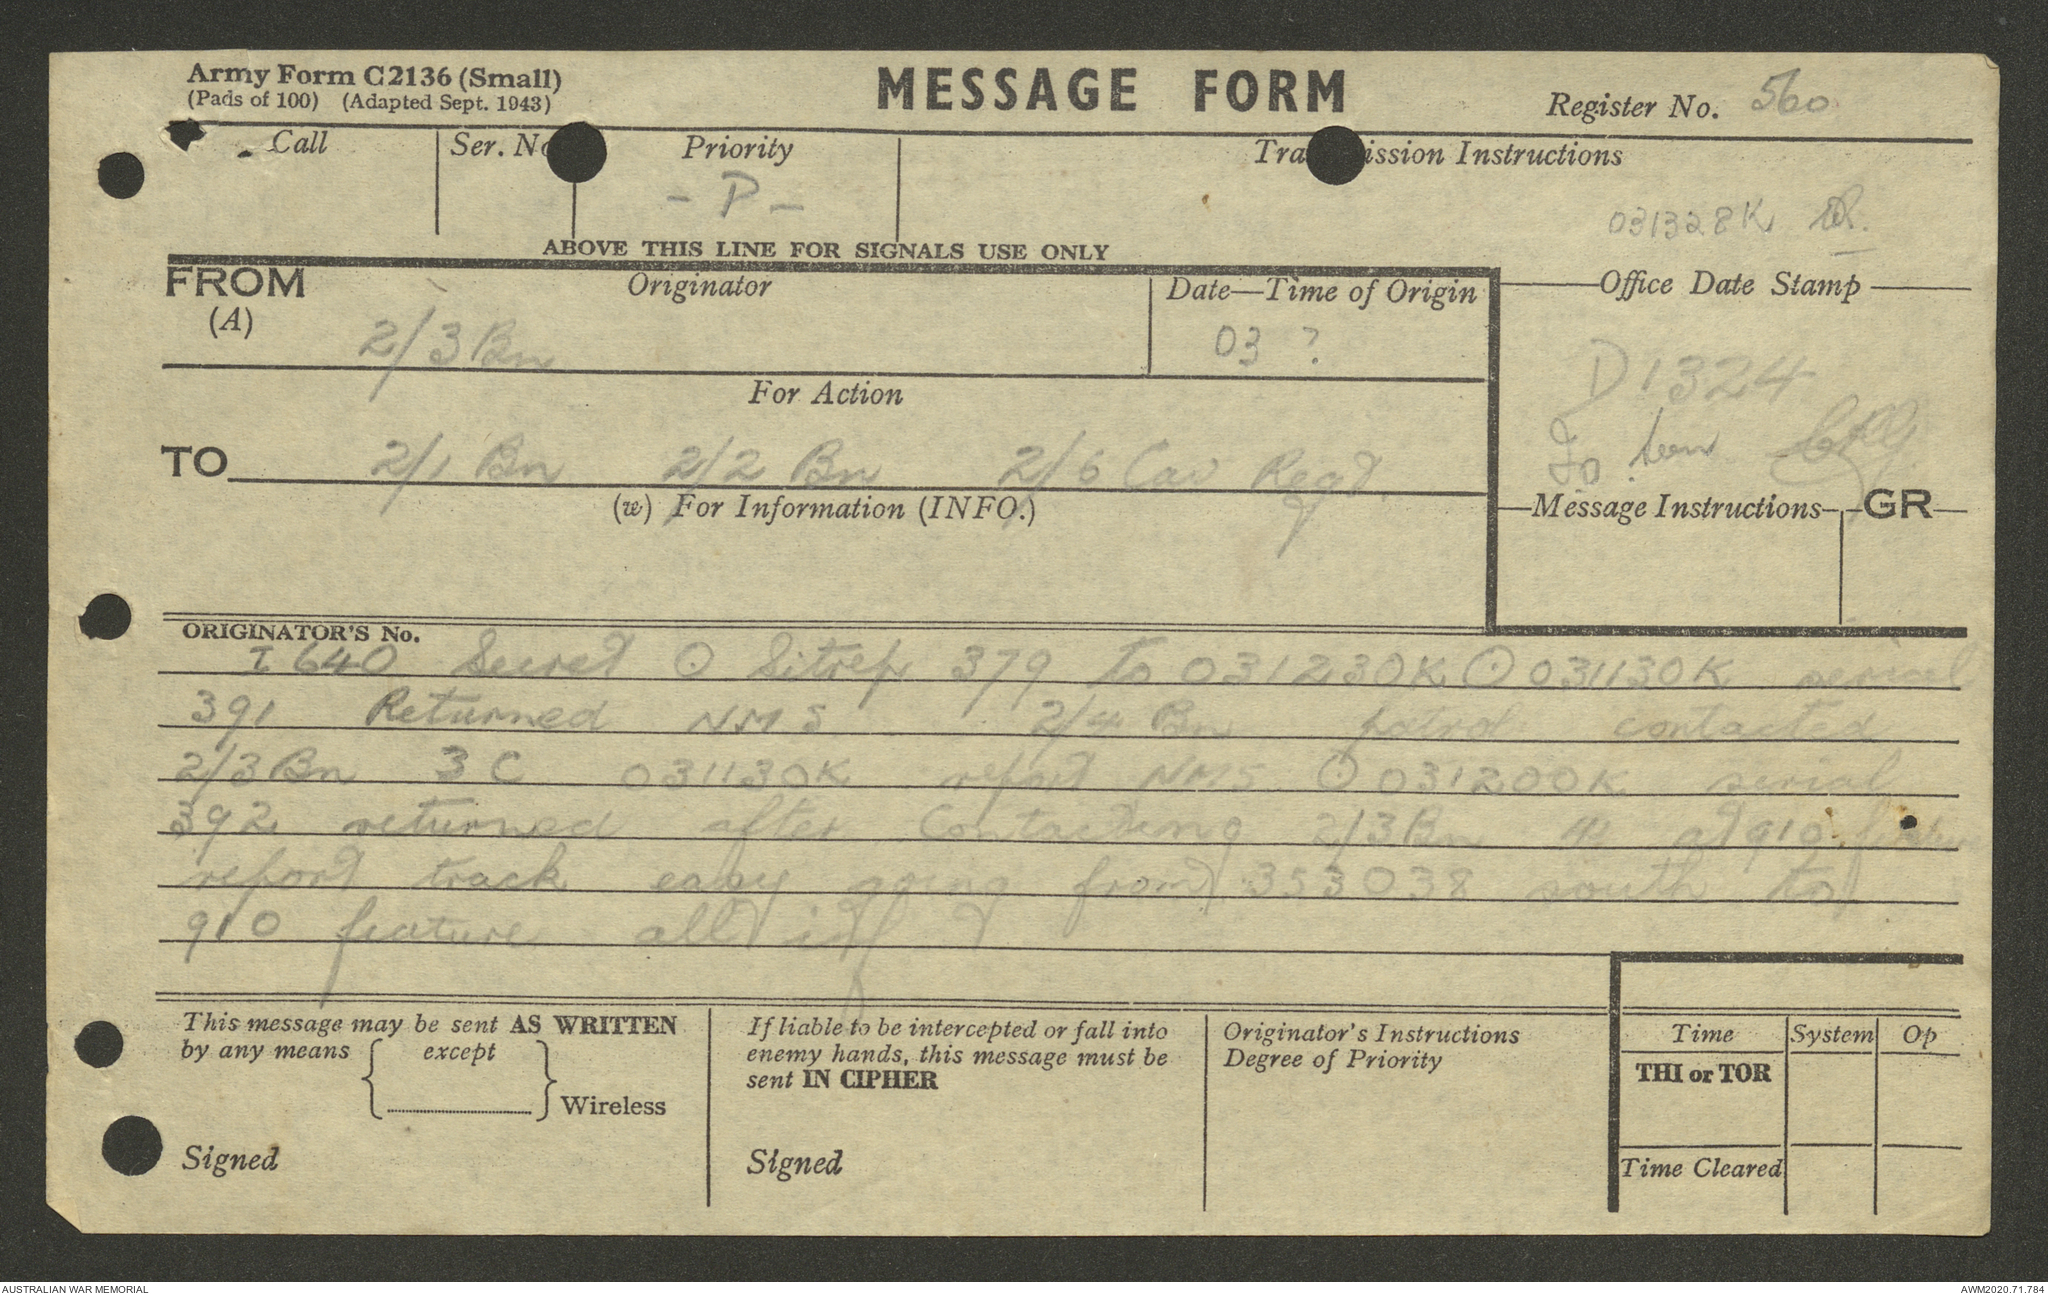 Army Form C2136 (Small)
(Pads of 100) (Adapted Sept. 1943)
MESSAGE FORM
Register No. 560
Call
Ser. No
Priority
Transmission Instructions
- P -
031328K
ABOVE THIS LINE FOR SIGNALS USE ONLY
FROM
(A)
Originator
Date—Time of Origin
Office Date Stamp
2/3 Bn
03 ?
D 1324
For Action
TO
2/1 Bn 2/2 Bn 2/6 Cav Regt.
Io. seen
(w) For Information (INFO.)
Message Instructions
GR
ORIGINATOR'S No.
I 640 Secret O Sitrep 379 to 031230K O 031130K serial
391 Returned NMS 2/4 Bn patrol contacted
2/3 Bn 3 C 031130K report NMS O 031200K serial
392 returned after contacting 2/3 Bn at 910 feature
report track easy going from 353038 south to
910 feature all inf
This message may be sent AS WRITTEN
by any means except
Wireless
Signed
If liable to be intercepted or fall into
enemy hands, this message must be
sent IN CIPHER
Signed
Originator's Instructions
Degree of Priority
Time
System
Op
THI or TOR
Time Cleared
AUSTRALIAN WAR MEMORIAL
AWM2020.71.784